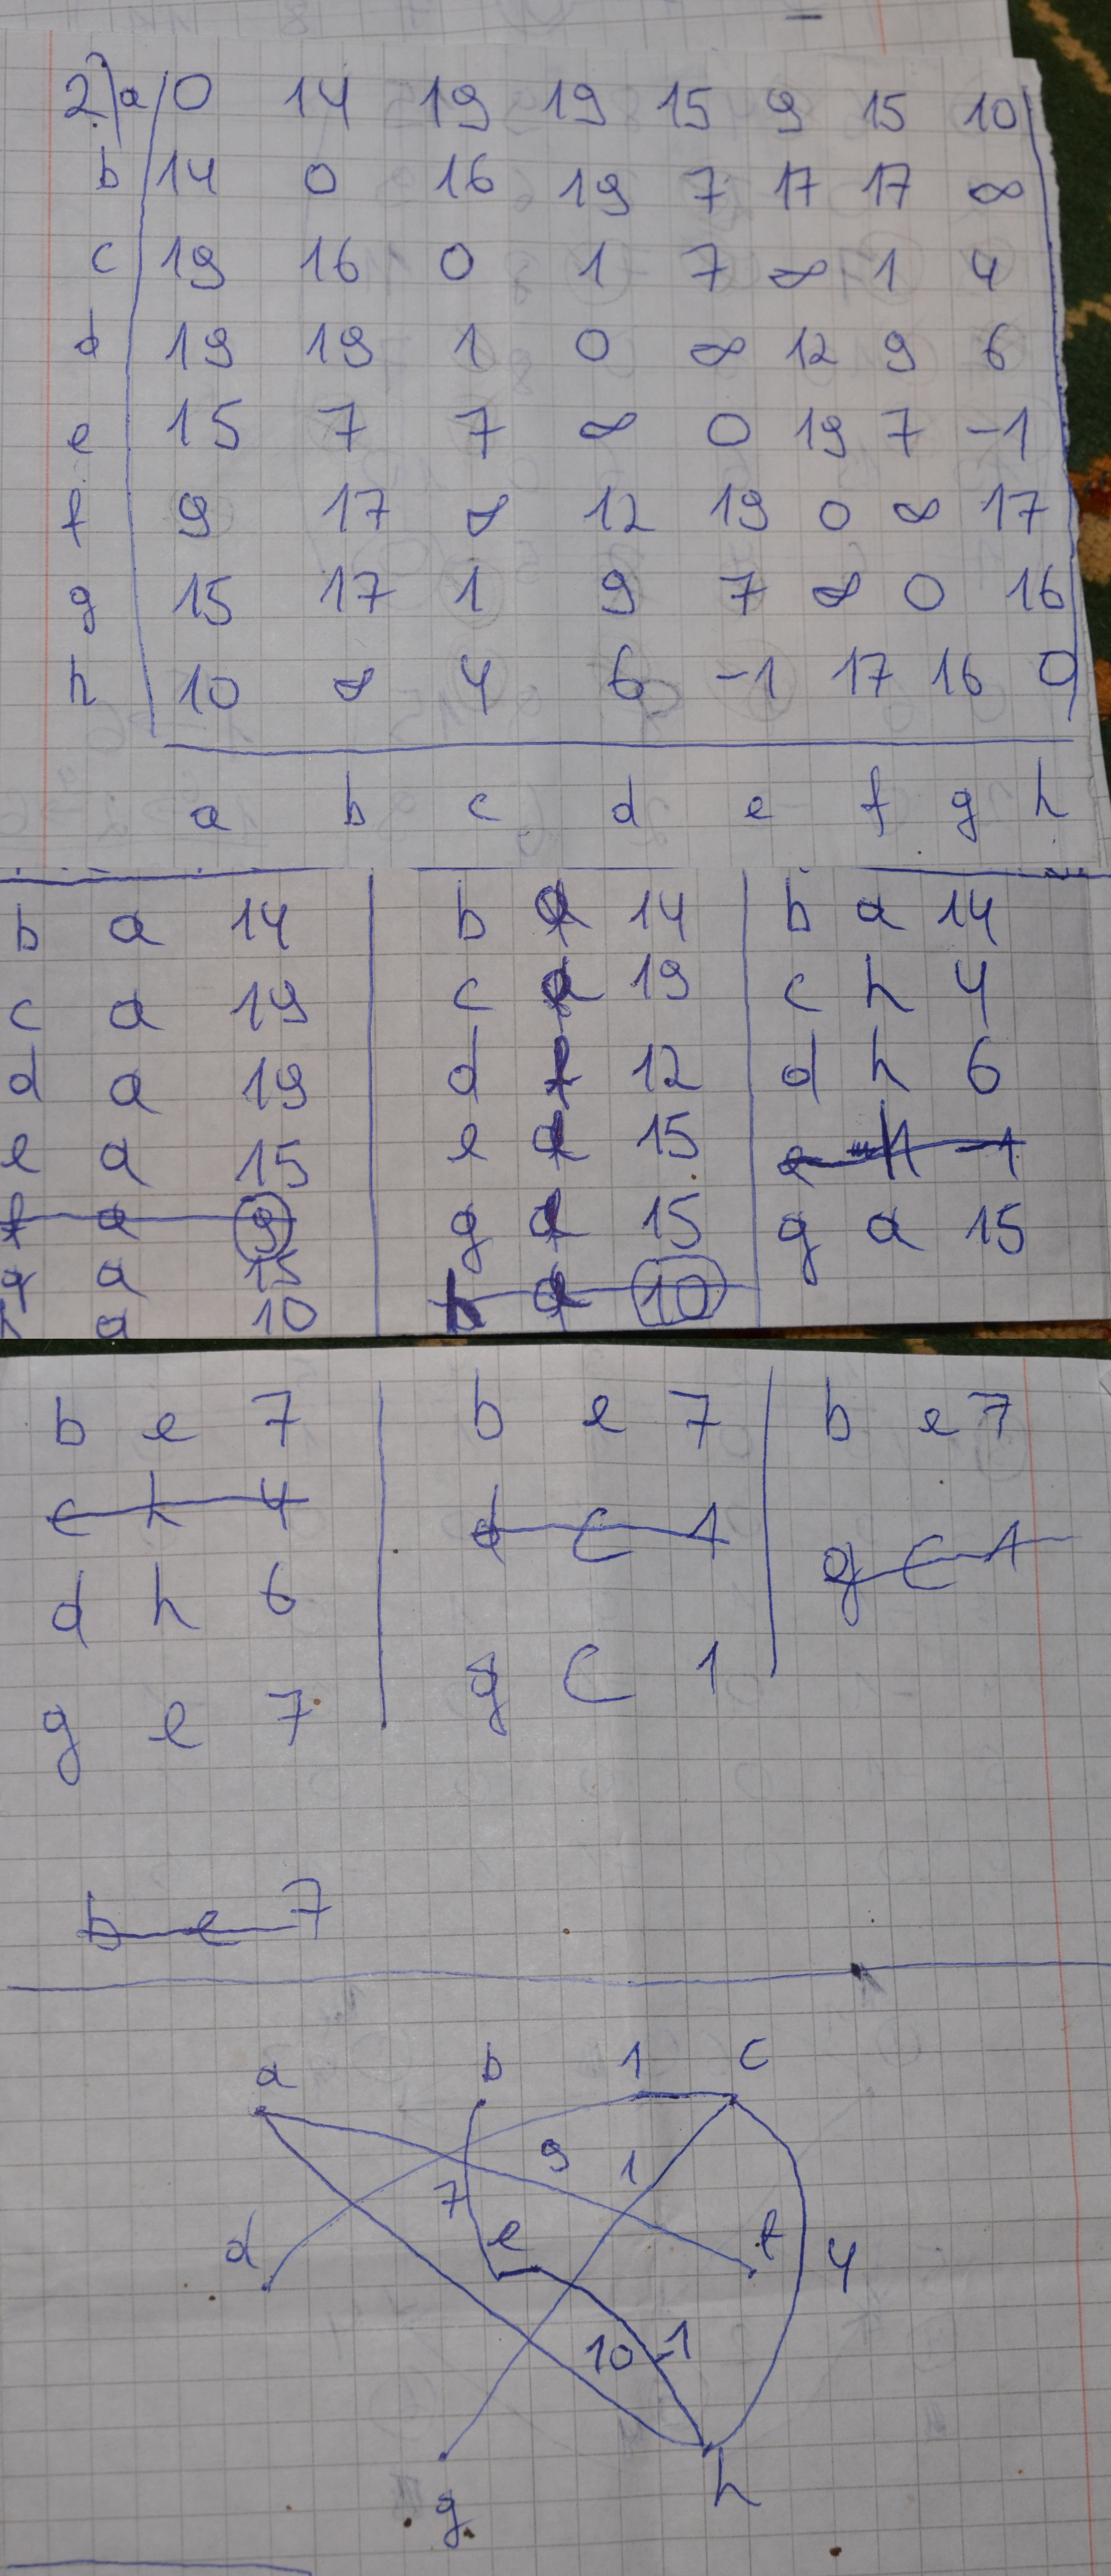 2) a 0 14 19 19 15 9 15 10
b 14 0 16 19 7 17 17 ∞
c 19 16 0 1 7 ∞ 1 4
d 19 19 1 0 ∞ 12 9 6
e 15 7 7 ∞ 0 19 7 -1
f 9 17 ∞ 12 19 0 ∞ 17
g 15 17 1 9 7 ∞ 0 16
h 10 ∞ 4 6 -1 17 16 0
a b c d e f g h
b a 14
c a 19
d a 19
e a 15
f a 9
g a 15
h a 10
b a 14
c a 19
d f 12
e a 15
g a 15
h a 10
b a 14
c h 4
d h 6
e h -1
g a 15
b e 7
c h 4
d h 6
g e 7
b e 7
d c 1
g c 1
b e 7
g c 1
b e 7
a b 1 c
9 1
7
d e f 4
10 -1
g h